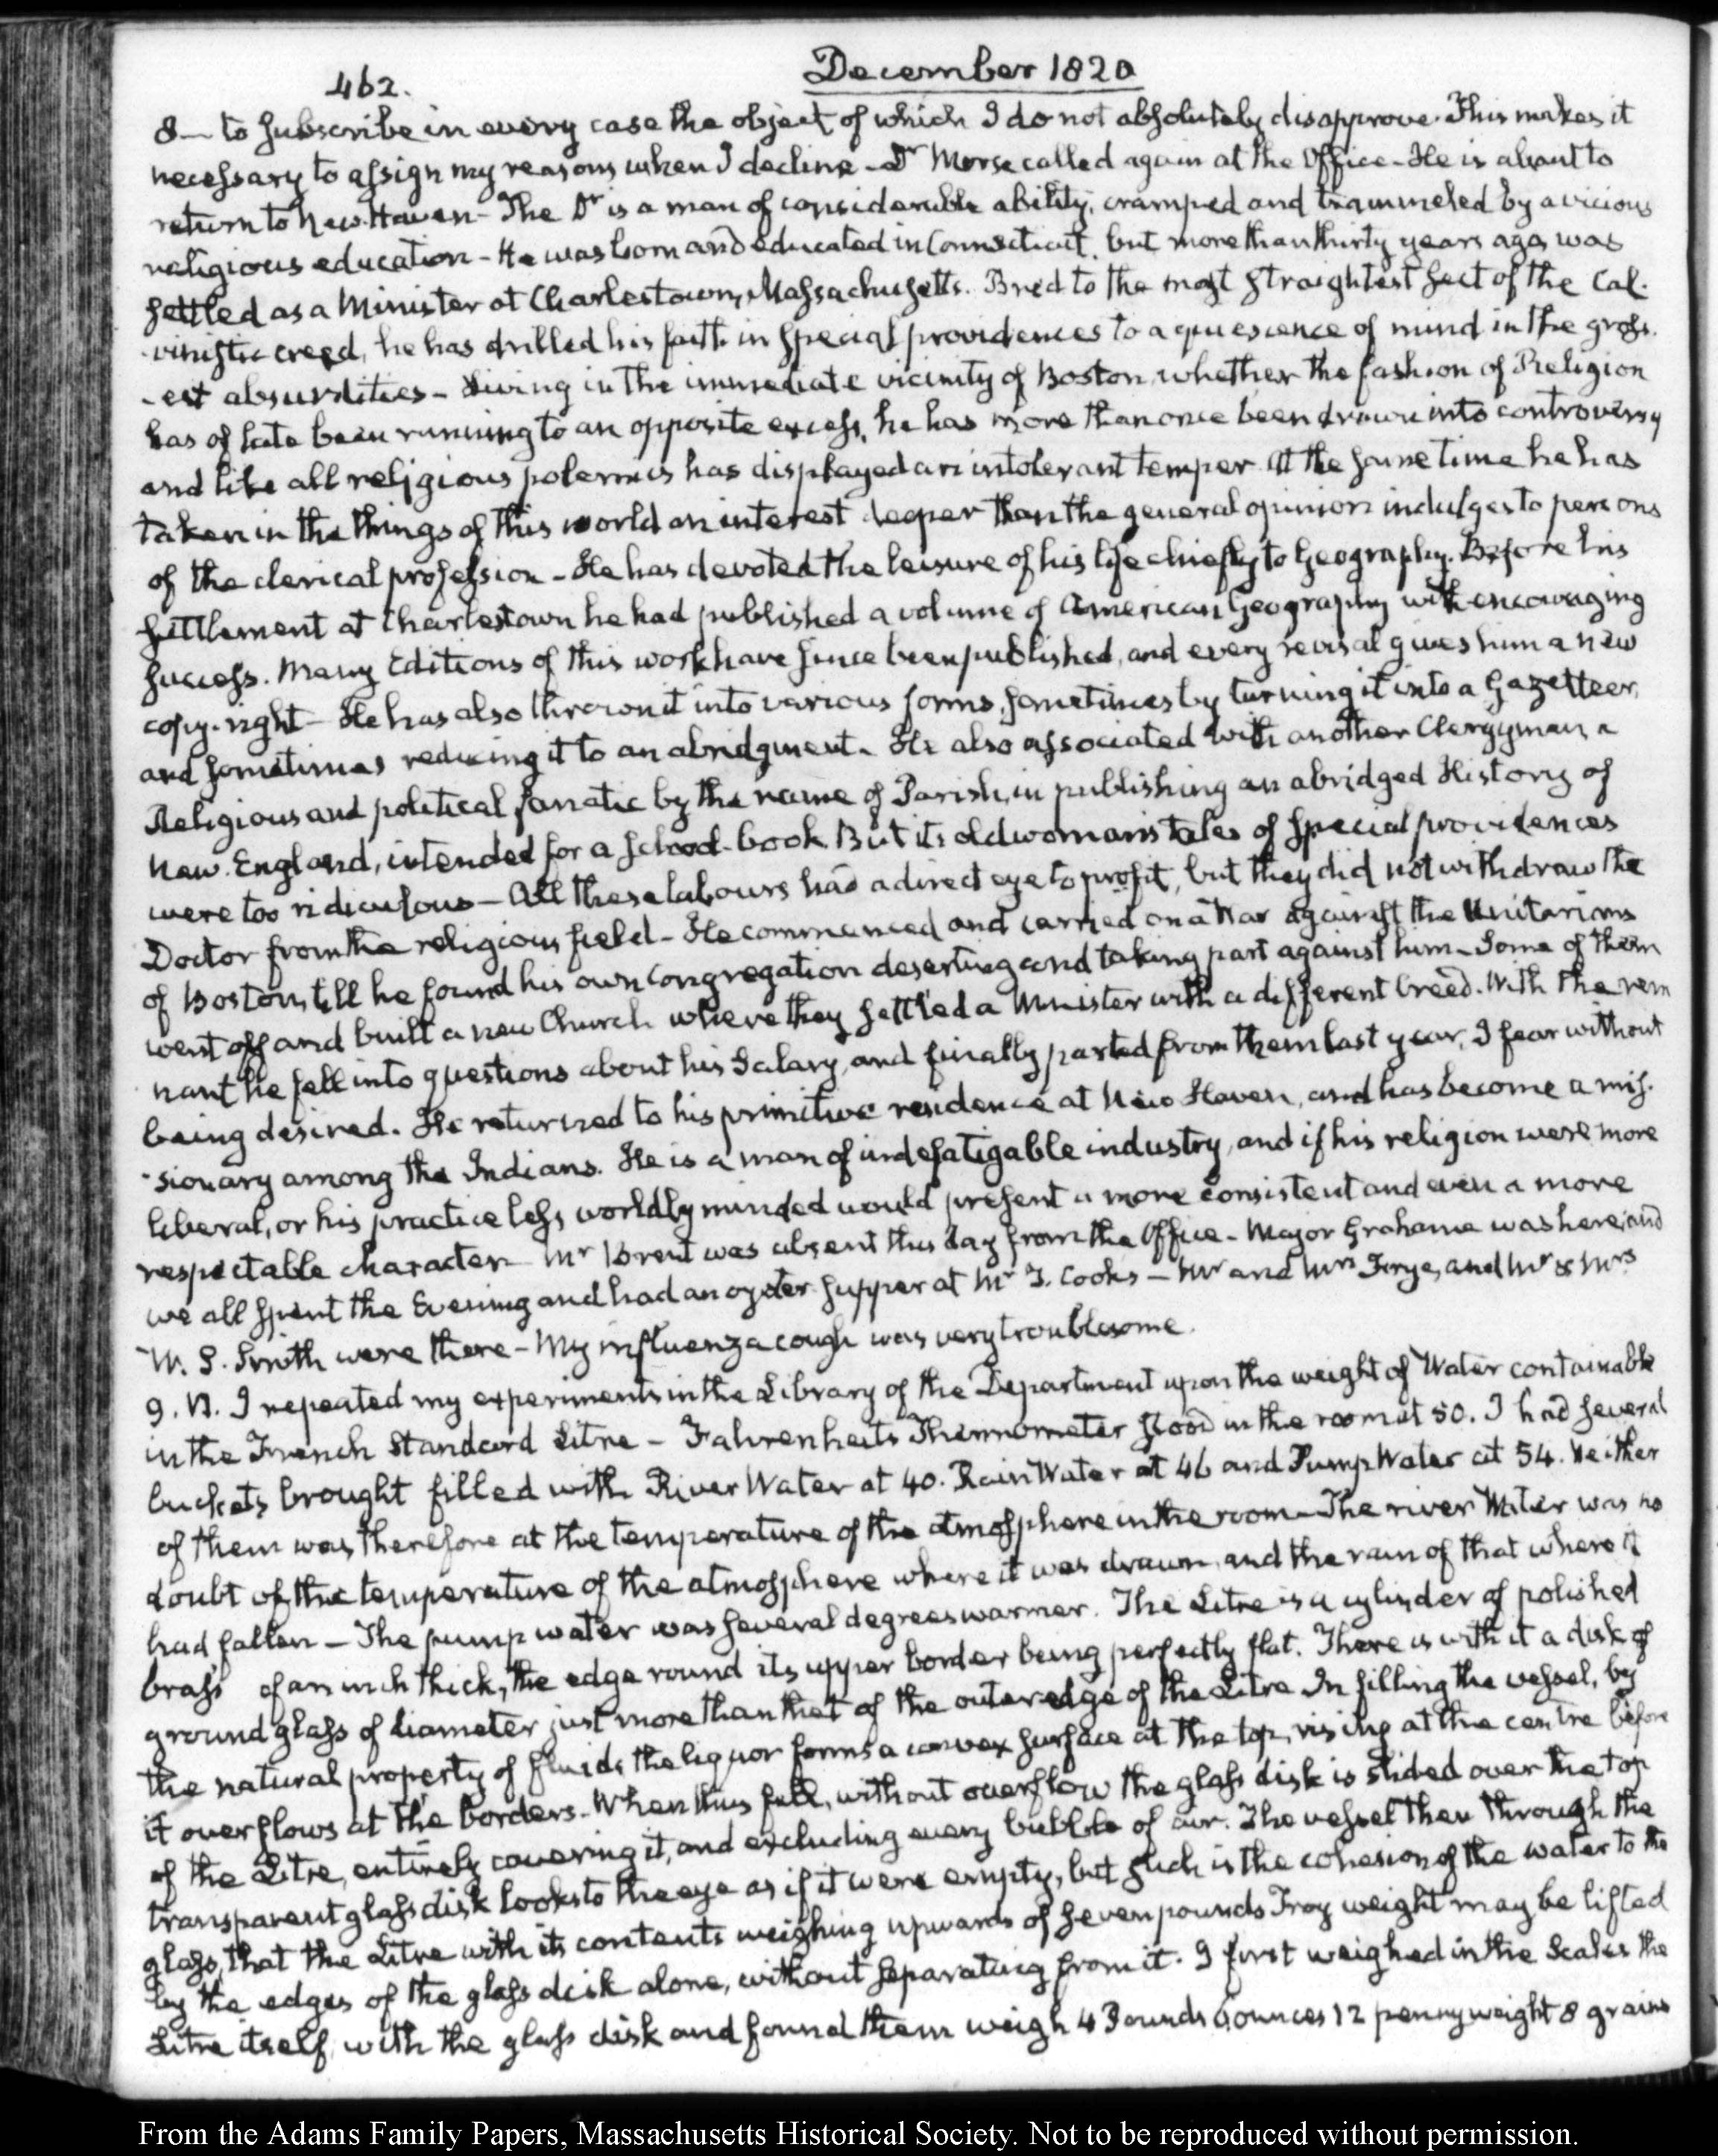 462.
December 1820
8— to subscribe in every case the object of which I do not absolutely disapprove. This makes it
necessary to assign my reasons when I decline - Dr Morse called again at the Office - He is about to
return to New Haven - The Dr is a man of considerable ability, cramped and trammeled by a vicious
religious education - He was born and educated in Connecticut, but more than thirty years ago, was
settled as a Minister at Charlestown, Massachusetts. Bred to the most straightest sect of the Cal-
-vinistic creed, he has drilled his faith in special providences to a quiescence of mind in the gross-
-est absurdities - Living in the immediate vicinity of Boston, whether the fashion of Religion
has of late been running to an opposite excess, he has more than once been drawn into controversy
and like all religious polemics has displayed an intolerant temper. At the same time he has
taken in the things of this world an interest deeper than the general opinion indulges to persons
of the clerical profession - He has devoted the leisure of his life chiefly to Geography. Before his
settlement at Charlestown he had published a volume of American Geography with encouraging
success. Many Editions of this work have since been published, and every revisal gives him a new
copy-right - He has also thrown it into various forms, sometimes by turning it into a Gazetteer,
and sometimes reducing it to an abridgment. He also associated with another Clergyman, a
Religious and political fanatic by the name of Parish, in publishing an abridged History of
New-England, intended for a school-book. But its old woman's tales of special providences
were too ridiculous - All these labours had a direct eye to profit, but they did not withdraw the
Doctor from the religious field - He commenced and carried on a War against the Unitarians
of Boston, till he found his own congregation deserting and taking part against him - Some of them
went off and built a new Church where they settled a Minister with a different Creed. With the rem
nant he fell into questions about his Salary, and finally parted from them last year, I fear without
being desired. He returned to his primitive residence at New Haven, and has become a mis-
-sionary among the Indians. He is a man of indefatigable industry, and if his religion were more
liberal, or his practice less worldly minded would present a more consistent and even a more
respectable character - Mr Brent was absent this day from the Office - Major Grahame was here, and
we all spent the Evening and had an oyster supper at Mr J. Cook's - Mr and Mrs Frye, and Mr & Mrs
W. S. Smith were there - My influenza cough was very troublesome.
9. VI. I repeated my experiments in the Library of the Department upon the weight of Water containable
in the French Standard Litre - Fahrenheits Thermometer stood in the room at 50. I had several
buckets brought filled with River Water at 40. Rain Water at 46 and Pump Water at 54. Neither
of them was therefore at the temperature of the atmosphere in the room - The river Water was no
doubt of the temperature of the atmosphere where it was drawn, and the rain of that where it
had fallen - The pump water was several degrees warmer. The Litre is a cylinder of polished
brass of an inch thick, the edge round its upper border being perfectly flat. There is with it a disk of
ground glass of diameter just more than that of the outer edge of the Litre. In filling the vessel, by
the natural property of fluids the liquor forms a convex surface at the top, rising at the centre before
it overflows at the borders. When thus full, without overflow the glass disk is slided over the top
of the Litre, entirely covering it, and excluding every bubble of air. The vessel then through the
transparent glass disk looks to the eye as if it were empty, but such is the cohesion of the water to the
glass, that the Litre with its contents weighing upwards of seven pounds Troy weight may be lifted
by the edges of the glass disk alone, without separating from it. I first weighed in the Scales the
Litre itself, with the glass disk and found them weigh 4 Pounds ounces 12 pennyweight 8 grains
From the Adams Family Papers, Massachusetts Historical Society. Not to be reproduced without permission.